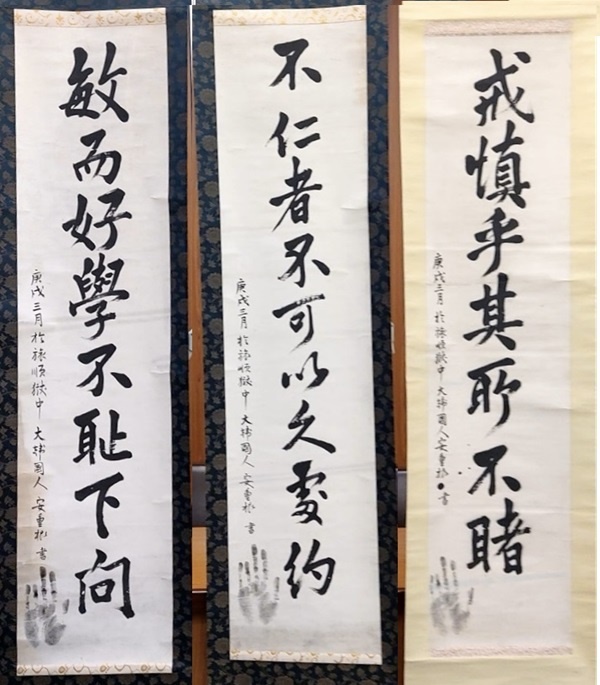 敏而好學不耻下問
庚戌三月 於旅順獄中 大韓國人 安重根 書
不仁者不可以久處約
庚戌三月 於旅順獄中 大韓國人 安重根 書
戒慎乎其所不睹
庚戌三月 於旅順獄中 大韓國人 安重根 書